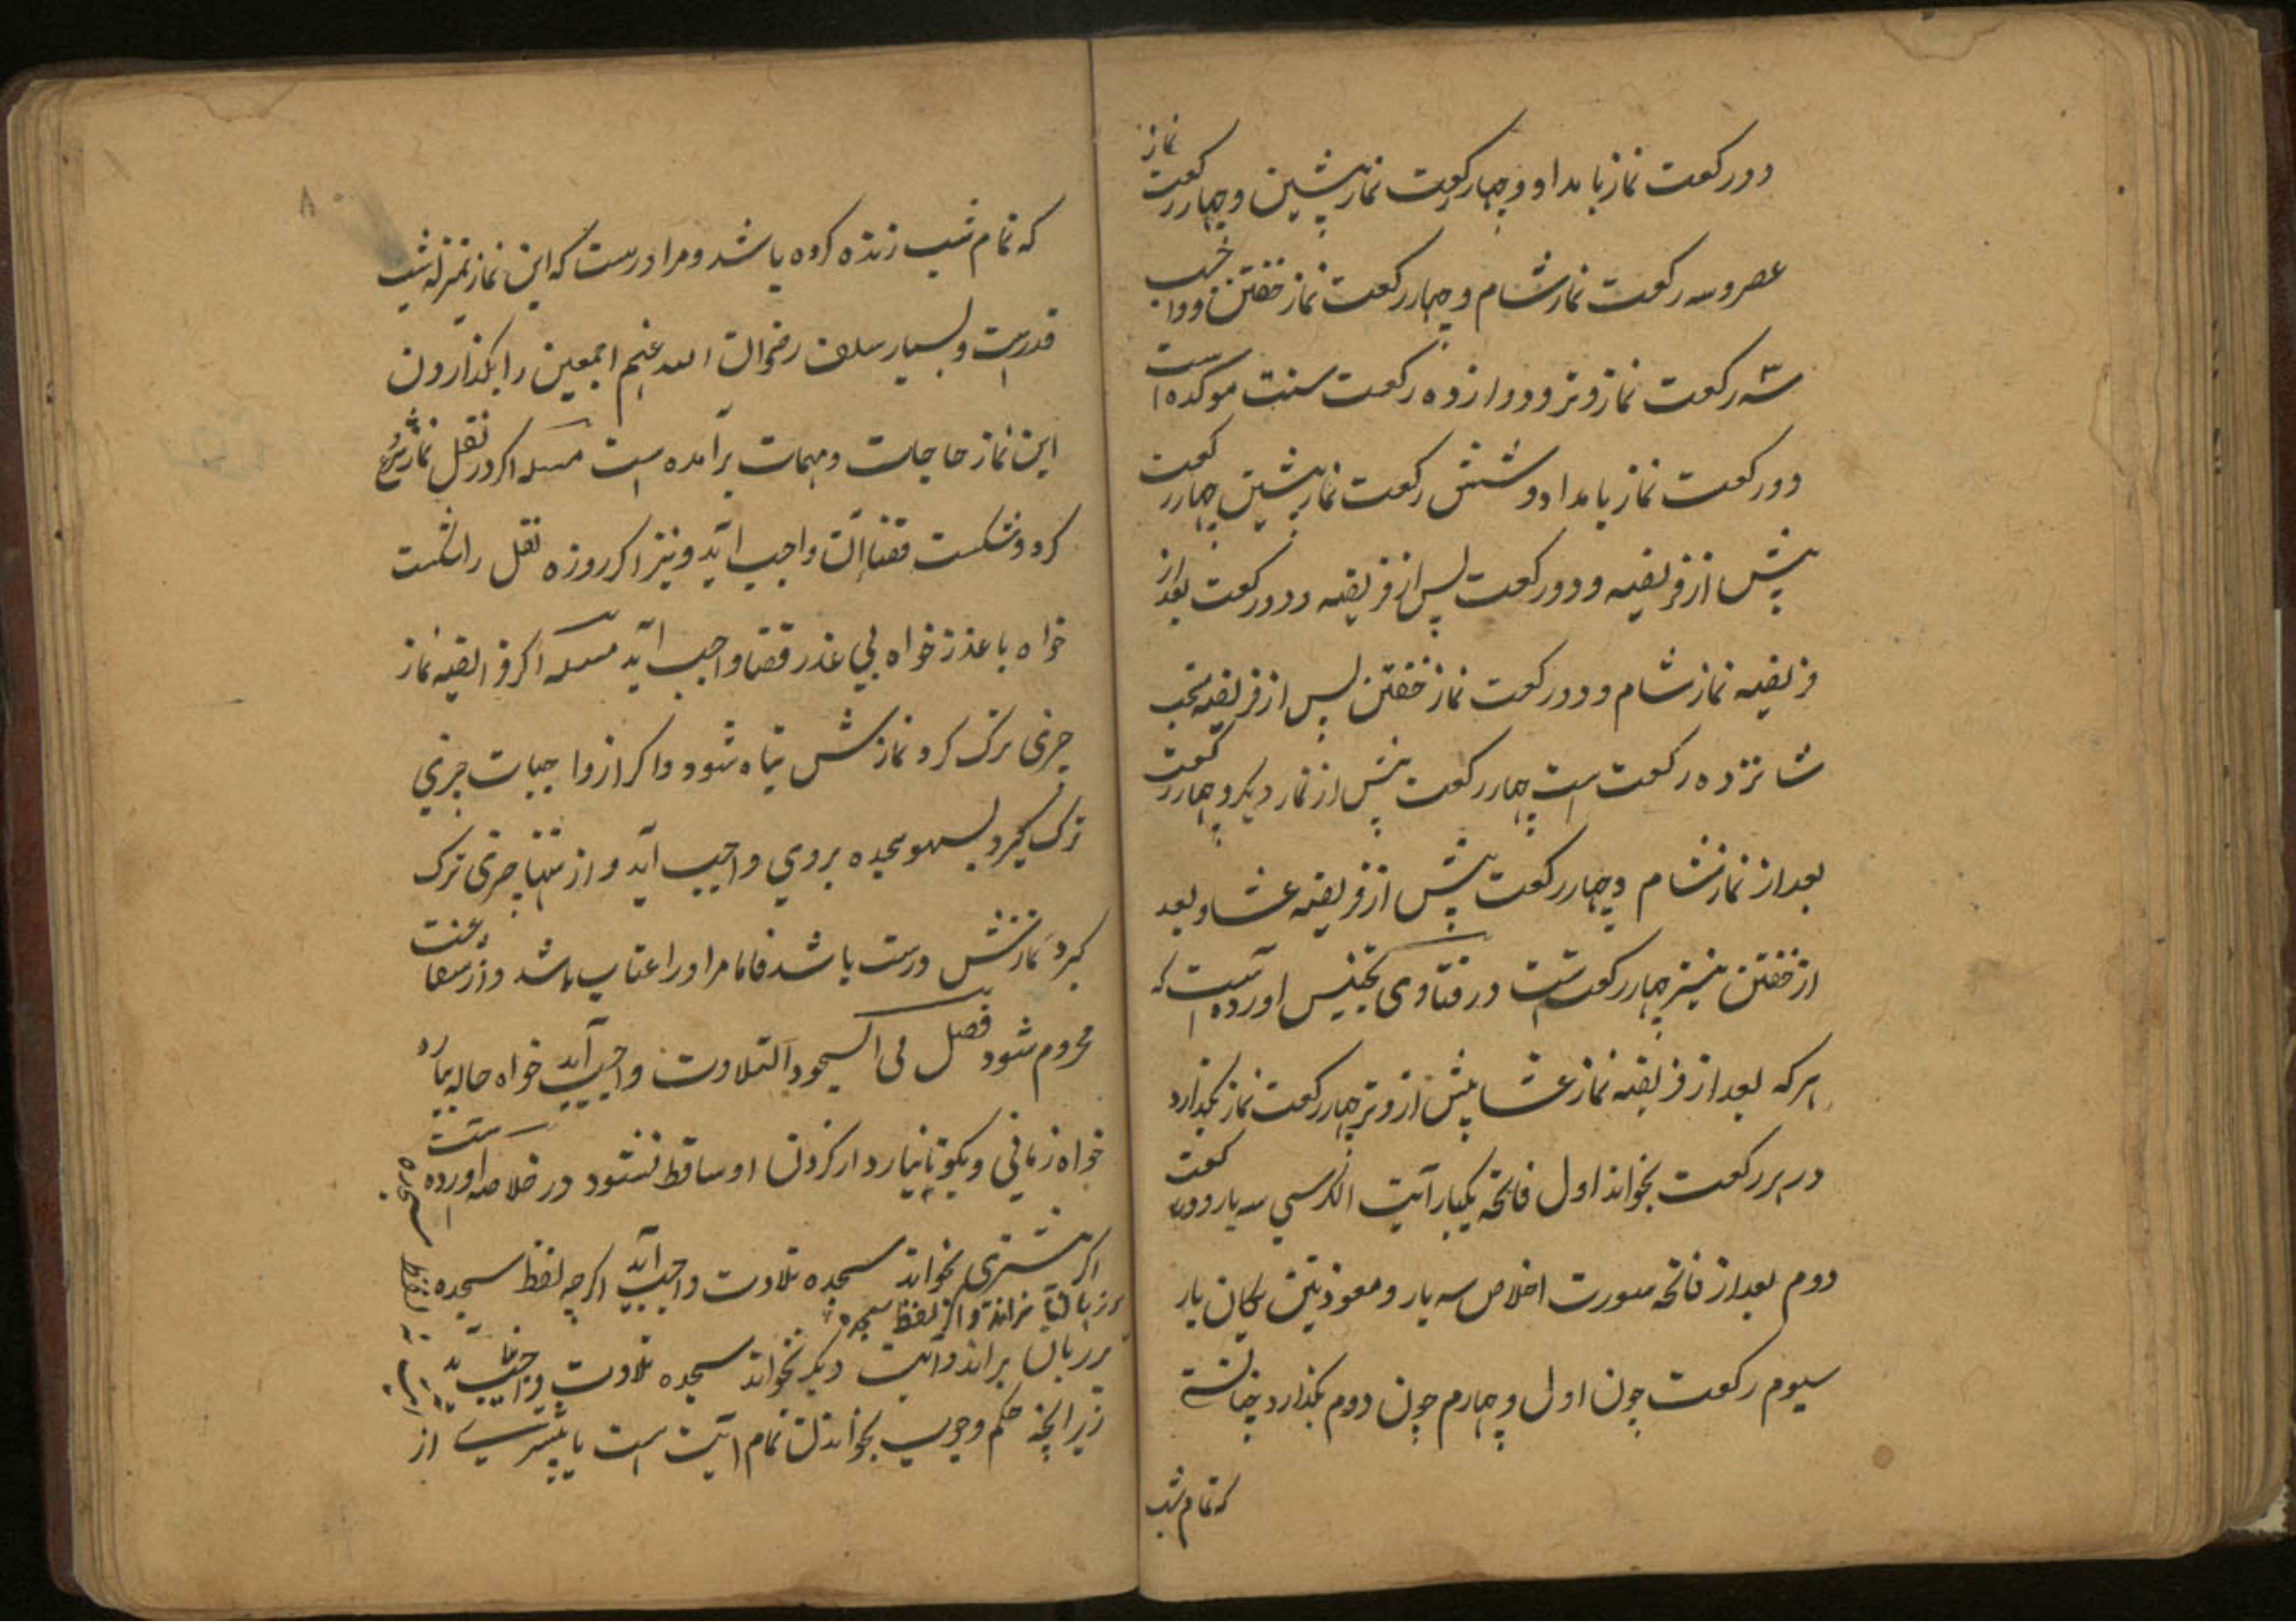 دو رکعت نماز بامداد و چهار رکعت نماز پیشین و چهار رکعت نماز
عصر و سه رکعت نماز شام و چهار رکعت نماز خفتن و واجب
سه رکعت نماز وتر و دوازده رکعت سنت موکده است
دو رکعت نماز بامداد و شش رکعت نماز پیشین چهار رکعت
پیش از فریضه و دو رکعت پس از فریضه و دو رکعت بعد از
فریضه نماز شام و دو رکعت نماز خفتن پس از فریضه مستحب
شانزده رکعت است چهار رکعت پیش از نماز دیکر و چهار رکعت
بعد از نماز شام و چهار رکعت پیش از فریضه عشا و بعد
از خفتن نیز چهار رکعت است در فتاوی تجنیس اورده است که
هر که بعد از فریضه نماز عشا پیش از وتر چهار رکعت نماز بگذارد
در هر رکعت بخواند اول فاتحه یکبار آیت الکرسی سه بار و در رکعت
دوم بعد از فاتحه سورت اخلاص سه بار و معوذتین یکان بار
سیوم رکعت چون اول و چهارم چون دوم بگذارد چنانستی
که تمام شب
۸۰
که تمام شب زنده کرده باشد و مراد رست که این نماز بمنزله شب
قدرست و بسیار سلف رضوان الله عنهم اجمعین را بگذاردن
این نماز حاجات و مهمات برآمده است مسله اکر در نفل نماز شروع
کرد و شکست قضا آن واجب آید و نیز اکر روزه نفل را شکست
خواه با عذر خواه بی عذر قضا واجب آید مسله اکر فرایضه نماز
چیزی ترک کرد نمازش تباه شود و اکر از واجبات چیزی
ترک کیرد بسهو سجده بروی واجب آید و از سنتها چیزی ترک
کیرد نمازش درست باشد فاما مر او را عتاب باشد و از شفاعت
محروم شود فصل فی السجود التلاوت واجب آید خواه حاله نماز
خواه زمانی و بکوتا نیارد از کردن او ساقط نشود در خلاصه آورده است
اکر بیشتری بخواند سجده تلاوت واجب آید اکرچه لفظ سجده
بر زبان نراند و اکر لفظ سجده
بر زبان براند و آیت دیکر نخواند سجده تلاوت واجب نیاید
زیرانچه حکم وجوب بخواندن تمام آیت است یا بیشتری از
آیت با لفظ سجده